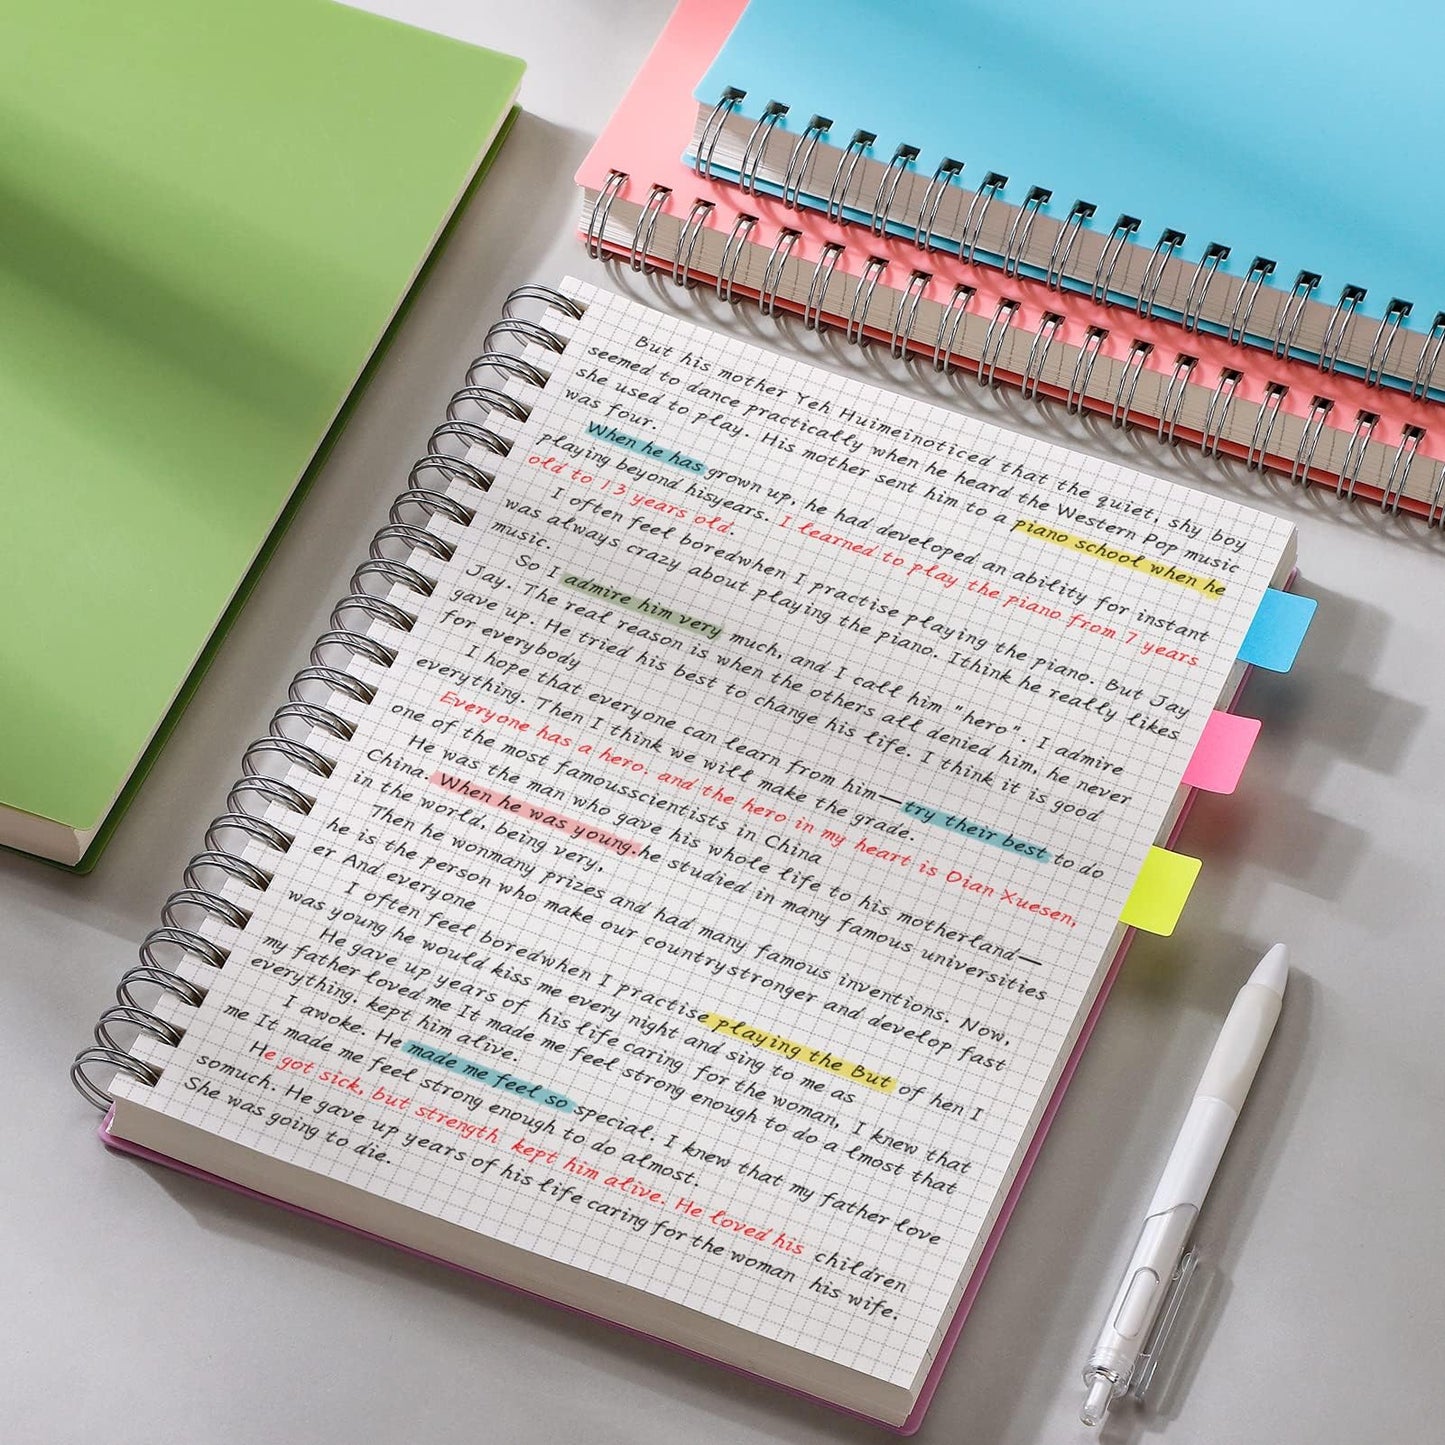 But his mother Yeh Huimeinoticed that the quiet, shy boy
seemed to dance practically when he heard the Western Pop music
she used to play. His mother sent him to a piano school when he
was four.
When he has grown up, he had developed an ability for instant
playing beyond hisyears. I learned to play the piano from 7 years
old to 13 years old.
I often feel boredwhen I practise playing the piano. But Jay
was always crazy about playing the piano. Ithink he really likes
music.
So I admire him very much, and I call him "hero". I admire
Jay. The real reason is when the others all denied him, he never
gave up. He tried his best to change his life. I think it is good
for everybody
I hope that everyone can learn from him—try their best to do
everything. Then I think we will make the grade.
Everyone has a hero, and the hero in my heart is Dian Xuesen,
one of the most famousscientists in China
He was the man who gave his whole life to his motherland—
China. When he was young.he studied in many famous universities
in the world, being very,
Then he wonmany prizes and had many famous inventions. Now,
he is the person who make our countrystronger and develop fast
er And everyone
I often feel boredwhen I practise playing the But of hen I
was young he would kiss me every night and sing to me as
He gave up years of his life caring for the woman, I knew that
my father loved me It made me feel strong enough to do a lmost that
everything. kept him alive.
I awoke. He made me feel so special. I knew that my father love
me It made me feel strong enough to do almost.
He got sick, but strength kept him alive. He loved his children
somuch. He gave up years of his life caring for the woman his wife.
She was going to die.